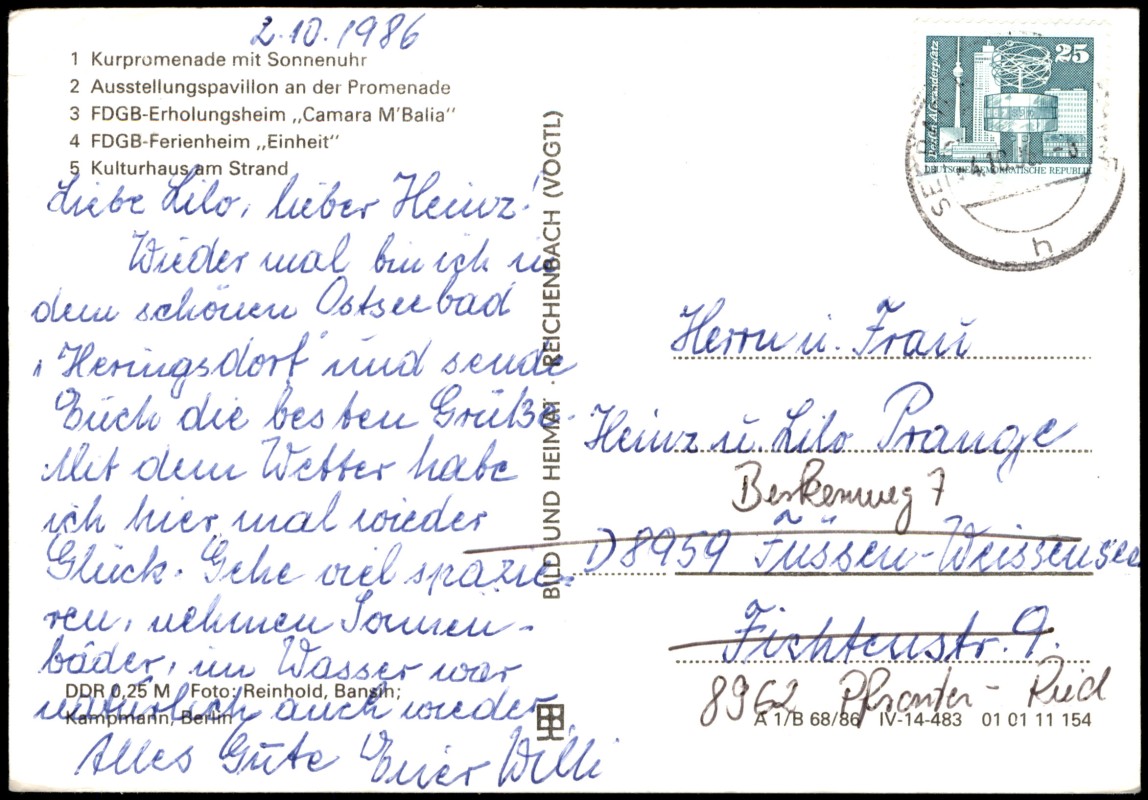 2.10.1986
1 Kurpromenade mit Sonnenuhr
2 Ausstellungspavillon an der Promenade
3 FDGB-Erholungsheim „Camara M'Balia“
4 FDGB-Ferienheim „Einheit“
5 Kulturhaus am Strand
Liebe Lilo, lieber Heinz!
Wieder mal bin ich in
dem schönen Ostseebad
„Heringsdorf“ und sende
Euch die besten Grüße.
Mit dem Wetter habe
ich hier mal wieder
Glück. Gehe viel spazie-
ren, nehmen Sonnen-
bäder, im Wasser war
natürlich auch wieder.
Alles Gute Euer Willi
DDR 0,25 M Foto: Reinhold, Bansin;
Kampmann, Berlin
BILD UND HEIMAT · REICHENBACH (VOGTL)
Berlin Alexanderplatz
25
DEUTSCHE DEMOKRATISCHE REPUBLIK
h
Herrn u. Frau
Heinz u. Lilo Prange
Berkenweg 7
D 8959 Füssen-Weissensee
Fichtenstr. 9.
8962 Pfronten - Ried
A 1/B 68/86 IV-14-483 01 01 11 154